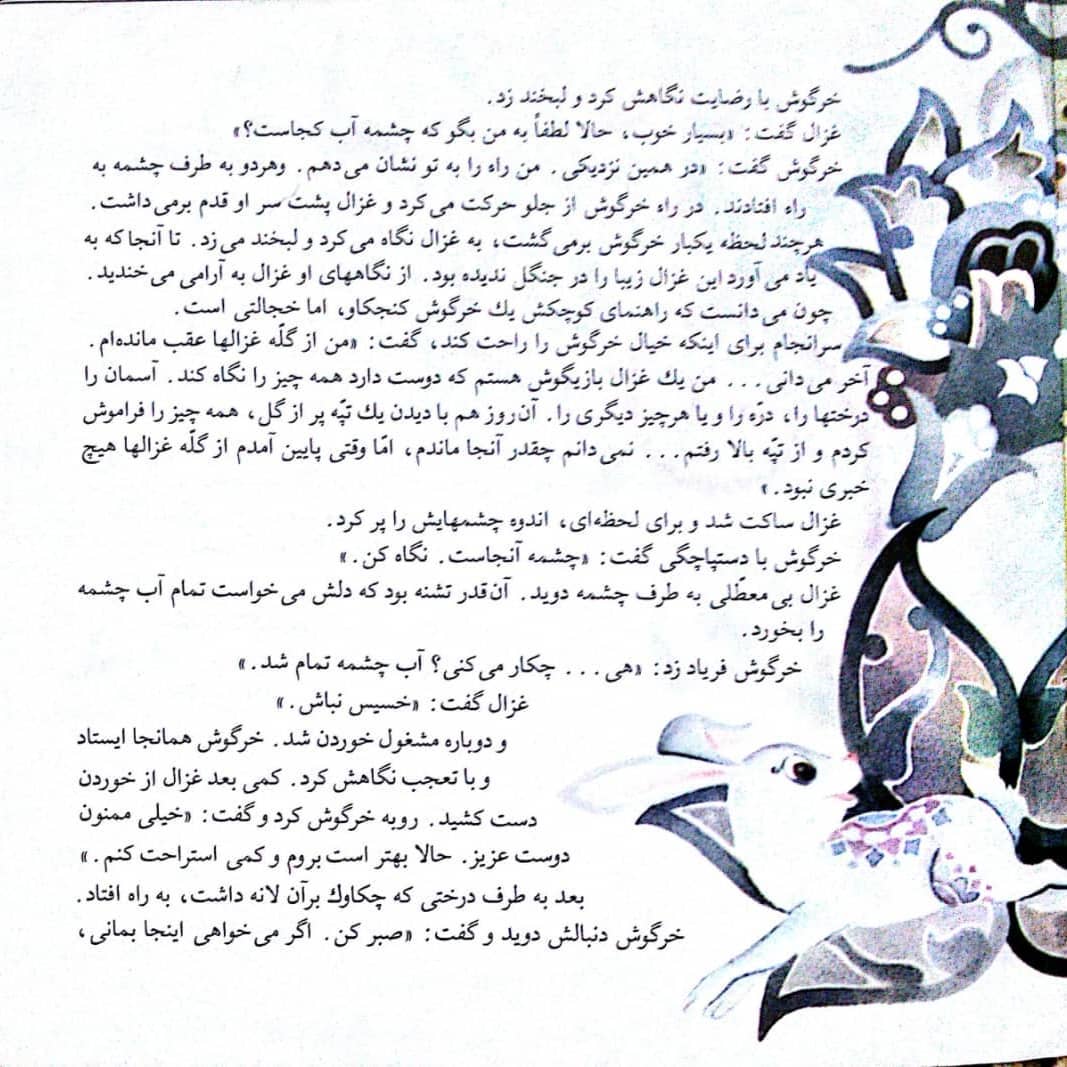 خرگوش با رضایت نگاهش کرد و لبخند زد.
غزال گفت: «بسیار خوب، حالا لطفاً به من بگو که چشمه آب کجاست؟»
خرگوش گفت: «در همین نزدیکی. من راه را به تو نشان می‌دهم. وهردو به طرف چشمه به
راه افتادند. در راه خرگوش از جلو حرکت می‌کرد و غزال پشت سر او قدم برمی‌داشت.
هرچند لحظه یکبار خرگوش برمی‌گشت، به غزال نگاه می‌کرد و لبخند می‌زد. تا آنجا که به
یاد می‌آورد این غزال زیبا را در جنگل ندیده بود. از نگاههای او غزال به آرامی می‌خندید.
چون می‌دانست که راهنمای کوچکش یك خرگوش کنجکاو، اما خجالتی است.
سرانجام برای اینکه خیال خرگوش را راحت کند، گفت: «من از گلّه غزالها عقب مانده‌ام.
آخر می‌دانی... من یك غزال بازیگوش هستم که دوست دارد همه چیز را نگاه کند. آسمان را
درختها را، درّه را و یا هرچیز دیگری را. آن‌روز هم با دیدن یك تپّه پر از گل، همه چیز را فراموش
کردم و از تپّه بالا رفتم... نمی‌دانم چقدر آنجا ماندم، امّا وقتی پایین آمدم از گلّه غزالها هیچ
خبری نبود.»
غزال ساکت شد و برای لحظه‌ای، اندوه چشمهایش را پر کرد.
خرگوش با دستپاچگی گفت: «چشمه آنجاست. نگاه کن.»
غزال بی‌معطّلی به طرف چشمه دوید. آن‌قدر تشنه بود که دلش می‌خواست تمام آب چشمه
را بخورد.
خرگوش فریاد زد: «هی... چکار می‌کنی؟ آب چشمه تمام شد.»
غزال گفت: «خسیس نباش.»
و دوباره مشغول خوردن شد. خرگوش همانجا ایستاد
و با تعجب نگاهش کرد. کمی بعد غزال از خوردن
دست کشید. روبه خرگوش کرد و گفت: «خیلی ممنون
دوست عزیز. حالا بهتر است بروم و کمی استراحت کنم.»
بعد به طرف درختی که چکاوك برآن لانه داشت، به راه افتاد.
خرگوش دنبالش دوید و گفت: «صبر کن. اگر می‌خواهی اینجا بمانی،